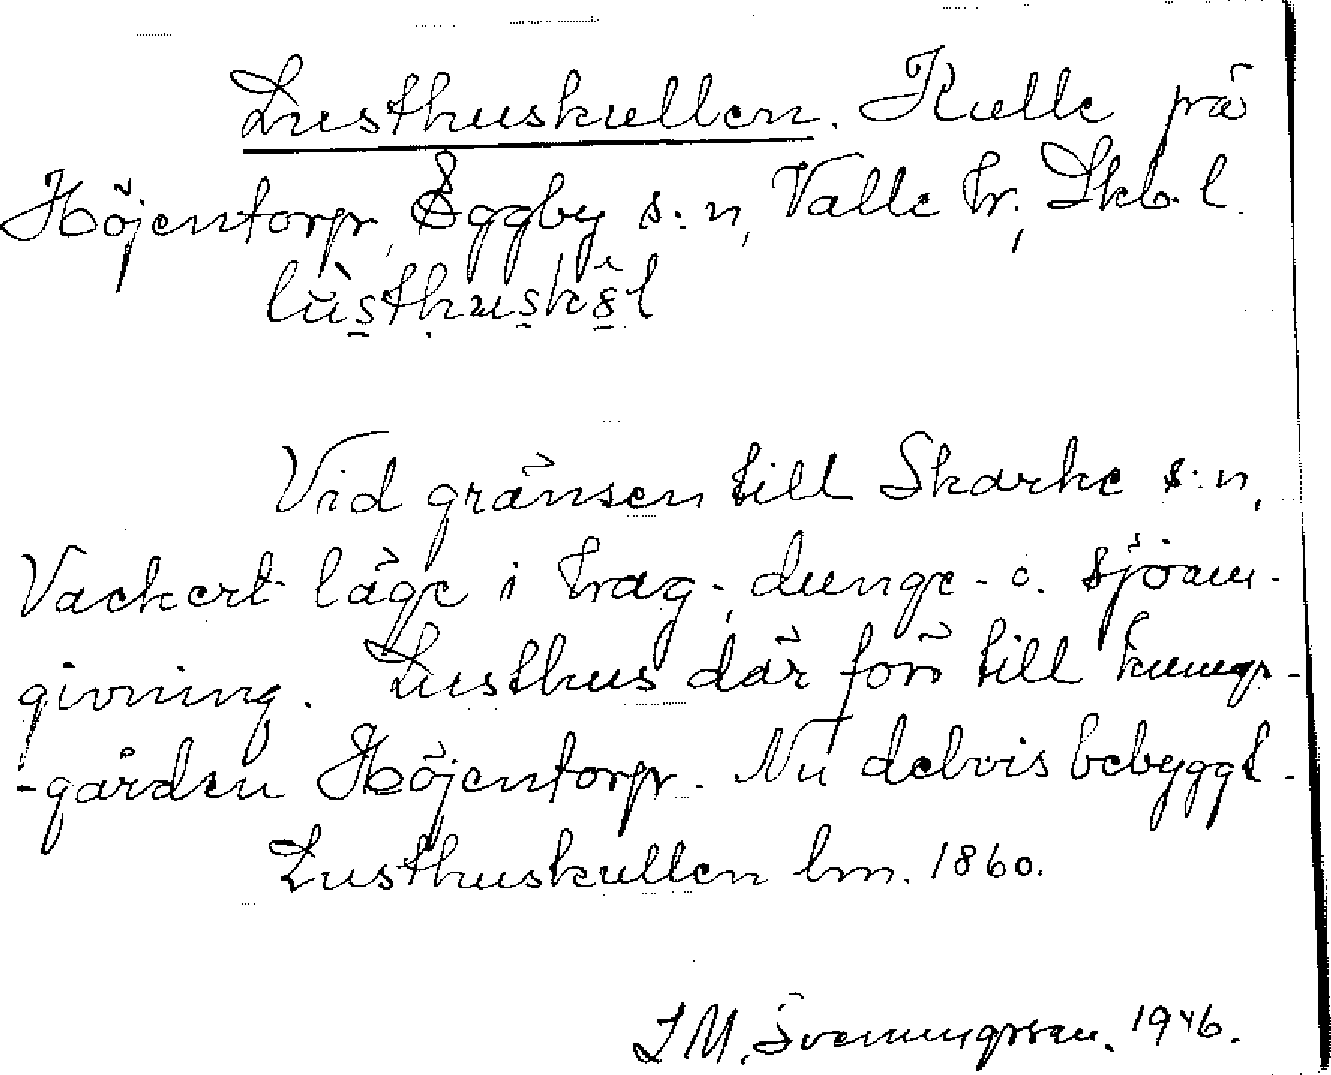 Lusthuskullen. Kulle på
Höjentorp, Eggby s:n, Valle hr, Skb. l.
Vid gränsen till Skarke s:n.
Vackert läge i hag-, dunge- o. sjöom-
givning. Lusthus där förr till kungs-
-gården Höjentorp. Nu delvis bebyggt.
Lusthuskullen lm. 1860.
J M. Svenungsson. 1946.